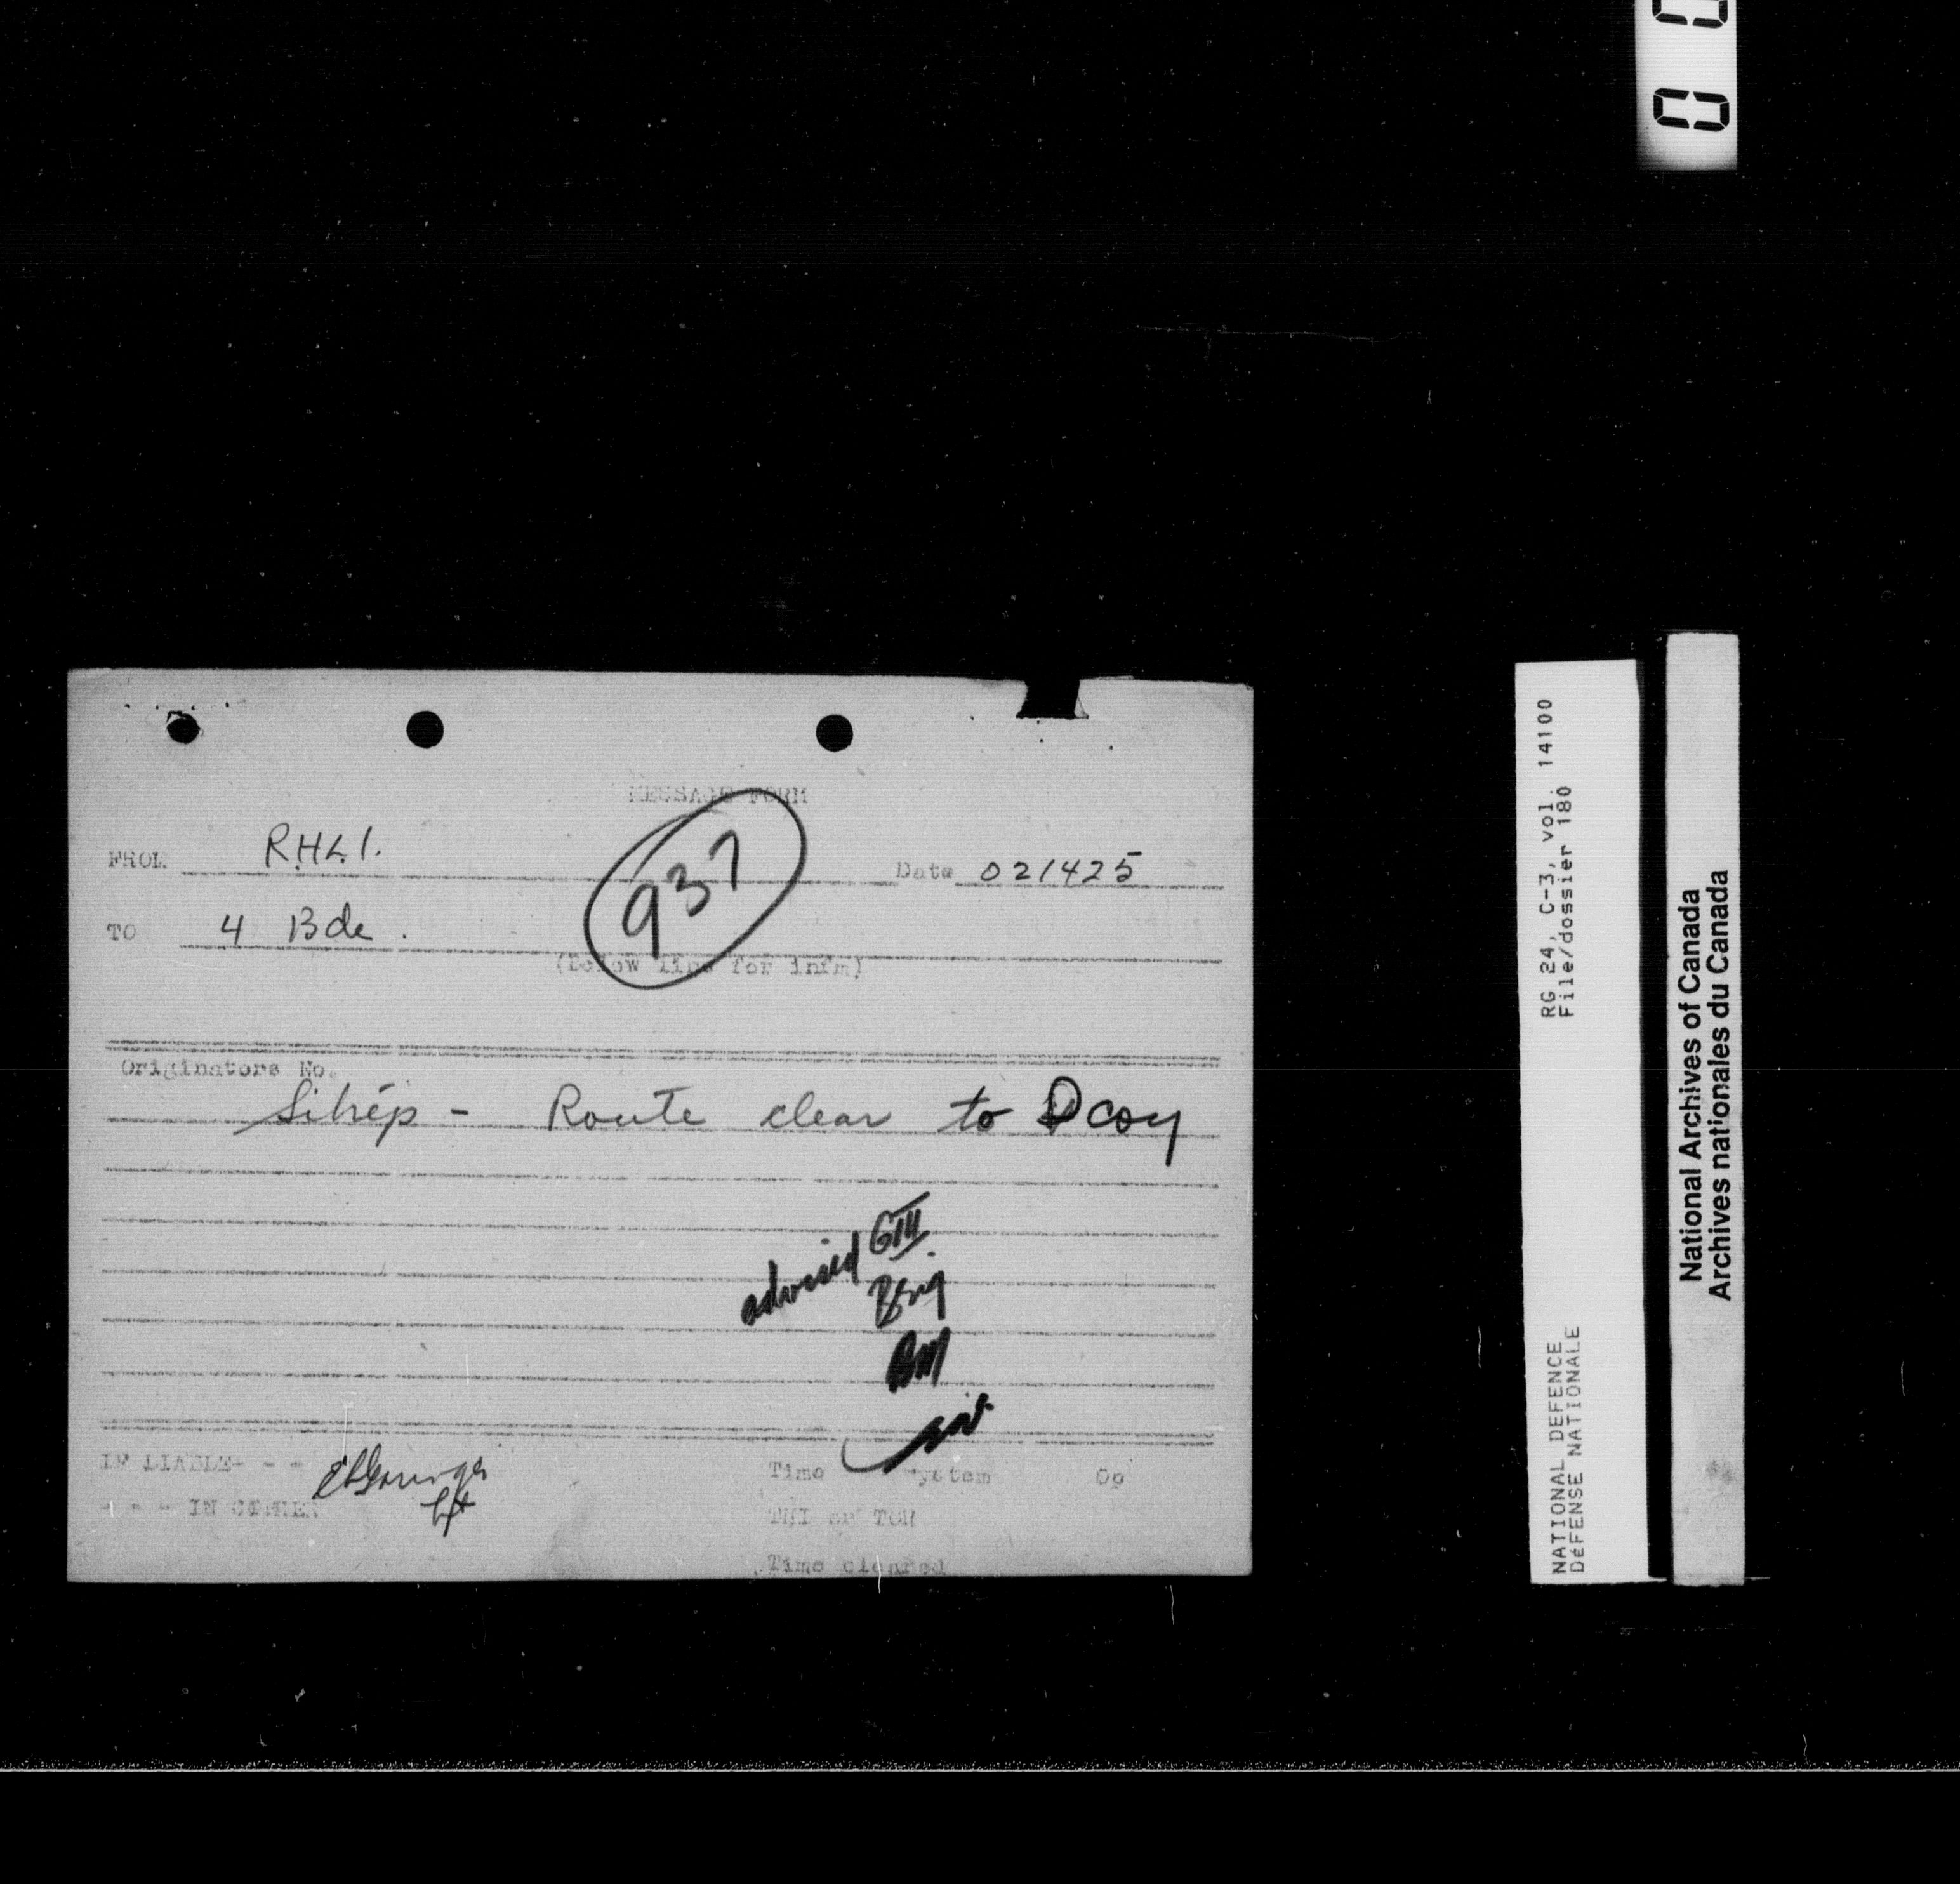 0 0
MESSAGE FORM
FROM R.H.L.I.
937
Date 021425
TO 4 Bde.
(below line for infm)
Originators No.
Sitrep - Route clear to D coy
advised GIII
Brig
BM
IN CIPHER
Lt
Time System Op
THI or TOR
Time cleared
RG 24, C-3, vol. 14100
File/dossier 180
NATIONAL DEFENCE
DéFENSE NATIONALE
National Archives of Canada
Archives nationales du Canada